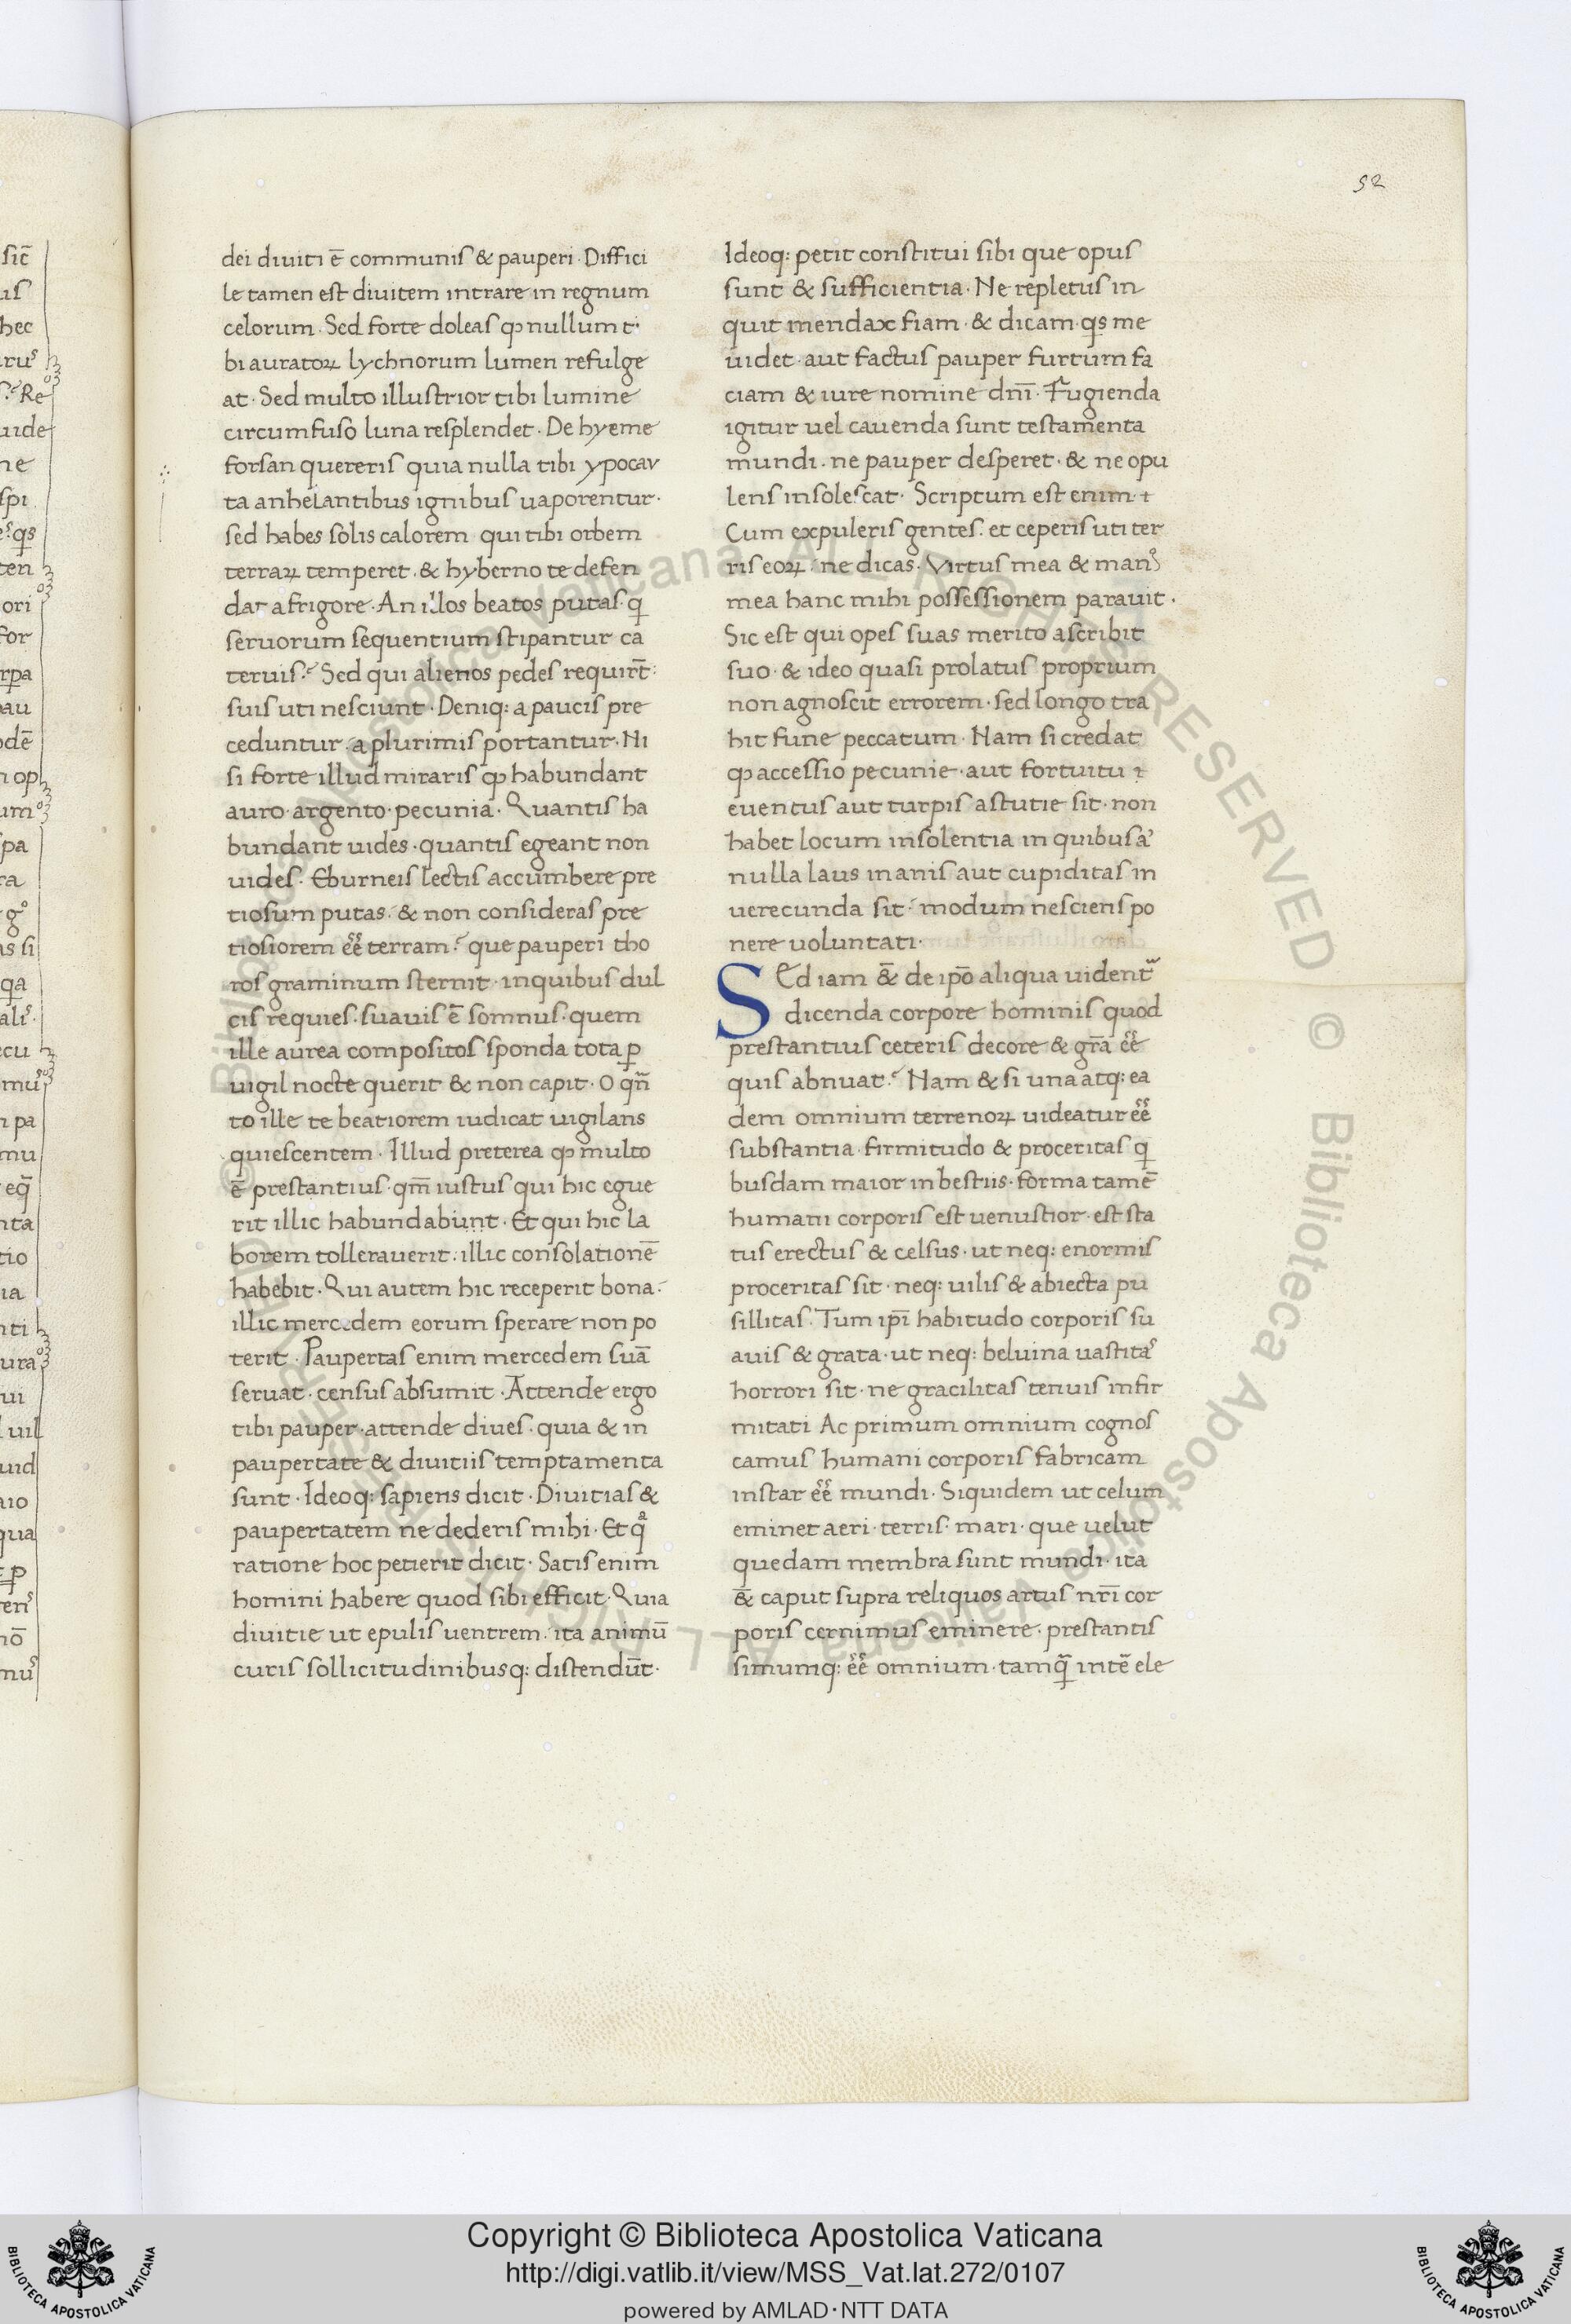 52
dei diuiti ē communis & pauperi · Diffici
le tamen est diuitem intrare in regnum
celorum · Sed forte doleas ꝙ nullum ti
bi auratoꝝ lychnorum lumen refulge
at · Sed multo illustrior tibi lumine
circumfuso luna resplendet · De hyeme
forsan quereris quia nulla tibi ypocau
ta anhelantibus ignibus uaporentur ·
sed habes solis calorem qui tibi orbem
terraꝝ temperet · & hyberno te defen
dat a frigore · An illos beatos putas · q
seruorum sequentium stipantur ca
teruis? Sed qui alienos pedes requirt̄ :
suis uti nesciunt · Deniq: a paucis pre
ceduntur · a plurimis portantur · Ni
si forte illud miraris ꝙ habundant
auro · argento · pecunia · Quantis ha
bundant uides · quantis egeant non
uides · Eburneis lectis accumbere pre
tiosum putas · & non consideras pre
tiosiorem eē terram? que pauperi tho
ros graminum sternit · in quibus dul
cis requies · suauis ē somnus · quem
ille aurea compositos sponda tota ꝑ
uigil nocte querit & non capit · O qn̄
to ille te beatiorem iudicat uigilans
quiescentem · Illud preterea ꝙ multo
ē prestantius · qm̄ iustus qui hic egue
rit illic habundabunt · Et qui hic la
borem tollerauerit · illic consolationē
habebit · Qui autem hic receperit bona ·
illic mercedem eorum sperare non po
terit · Paupertas enim mercedem suā
seruat · census absumit · Attende ergo
tibi pauper · attende diues · quia & in
paupertate & diuitiis temptamenta
sunt · Ideoq: sapiens dicit · Diuitias &
paupertatem ne dederis mihi · Et qª
ratione hoc petierit dicit · Satis enim
homini habere quod sibi efficit · Quia
diuitie ut epulis uentrem · ita animū
curis sollicitudinibusq: distendūt ·
Ideoq: petit constitui sibi que opus
sunt & sufficientia · Ne repletus in
quit mendax fiam · & dicam · qs me
uidet · aut factus pauper furtum fa
ciam & iure nomine dnī · Fugienda
igitur uel cauenda sunt testamenta
mundi · ne pauper desperet · & ne opu
lens insolescat · Scriptum est enim
Cum expuleris gentes · et ceperis uti ter
ris eoꝝ · ne dicas · Virtus mea & manꝰ
mea hanc mihi possessionem parauit ·
Sic est qui opes suas merito ascribit
suo · & ideo quasi prolatus proprium
non agnoscit errorem · sed longo tra
hit fune peccatum · Nam si credat
ꝙ accessio pecunie · aut fortuitu
euentus aut turpis astutie sit · non
habet locum insolentia in quibus a
nulla laus inanis aut cupiditas in
uerecunda sit · modum nesciens po
nere uoluntati ·
SEd iam &̄ de ipō aliqua uident
dicenda corpore hominis quod
prestantius ceteris decore & grā eē
quis abnuat? Nam & si una atq: ea
dem omnium terrenoꝝ uideatur eē
substantia · firmitudo & proceritas q
busdam maior in bestiis · forma tamē
humani corporis est uenustior · est sta
tus erectus & celsus · ut neq: enormis
proceritas sit · neq: uilis & abiecta pu
sillitas · Tum ipī habitudo corporis su
auis & grata · ut neq: beluina uastitas
horrori sit · ne gracilitas tenuis infir
mitati Ac primum omnium cognos
camus humani corporis fabricam
instar eē mundi · Siquidem ut celum
eminet aeri · terris · mari · que uelut
quedam membra sunt mundi · ita
&̄ caput supra reliquos artus nrī cor
poris cernimus eminere · prestantis
simumq: eē omnium · tamq̄ intē ele
Copyright © Biblioteca Apostolica Vaticana
http://digi.vatlib.it/view/MSS_Vat.lat.272/0107
powered by AMLAD·NTT DATA